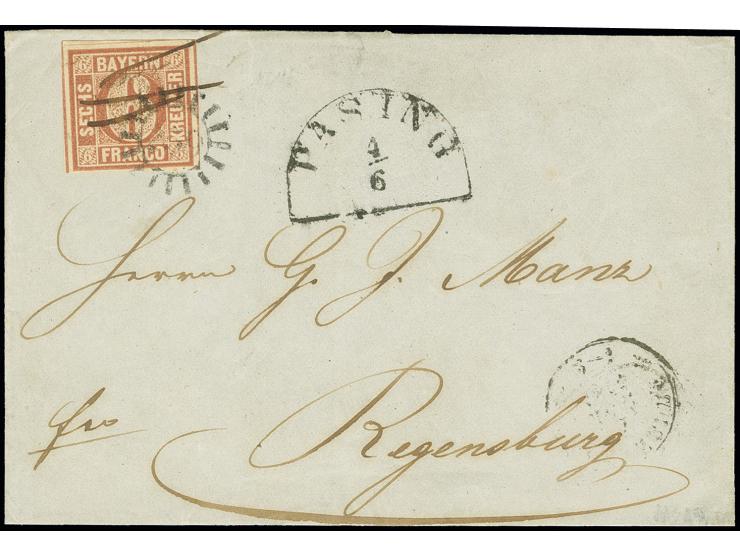 BAYERN
SECHS
6
KREUZER
FRANCO
PASING
4
6
Herrn G. J. Manz
fro
Regensburg